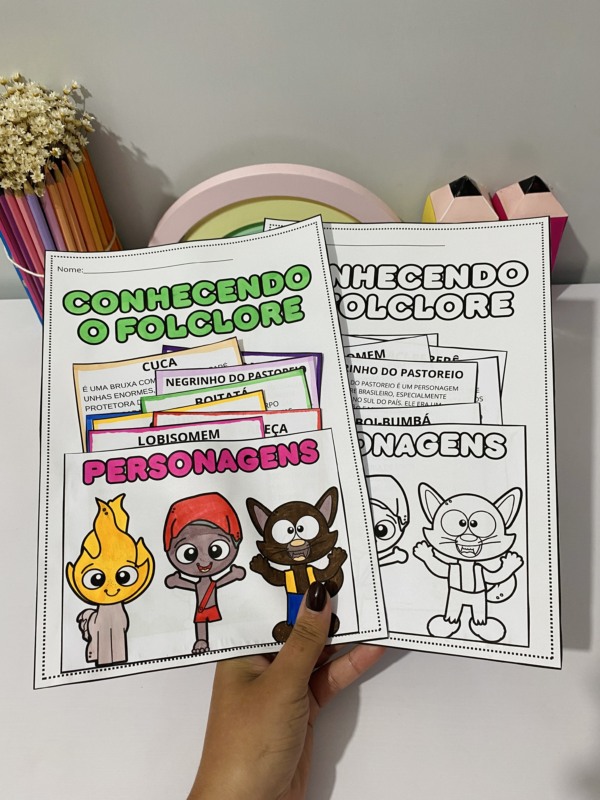 Nome:
CONHECENDO
O FOLCLORE
CUCA
É UMA BRUXA COM
UNHAS ENORMES,
PROTETORA D
NEGRINHO DO PASTOREIO
BOITATÁ
EÇA
LOBISOMEM
PERSONAGENS
NHECENDO
FOLCLORE
OMEM
RINHO DO PASTOREIO
DO PASTOREIO É UM PERSONAGEM
RE BRASILEIRO, ESPECIALMENTE
NO SUL DO PAÍS. ELE ERA UM
BOI-BUMBÁ
ONAGENS